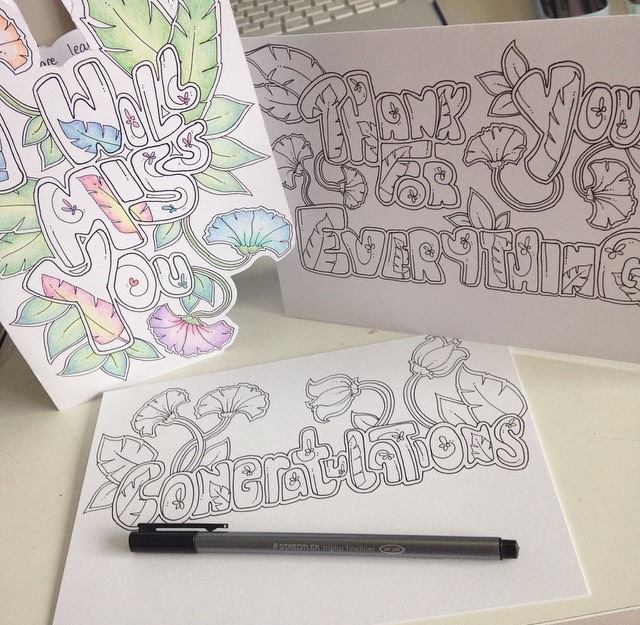 I Will
Miss
You
Thank You
For
Everything
Congratulations
STAEDTLER triplus fineliner